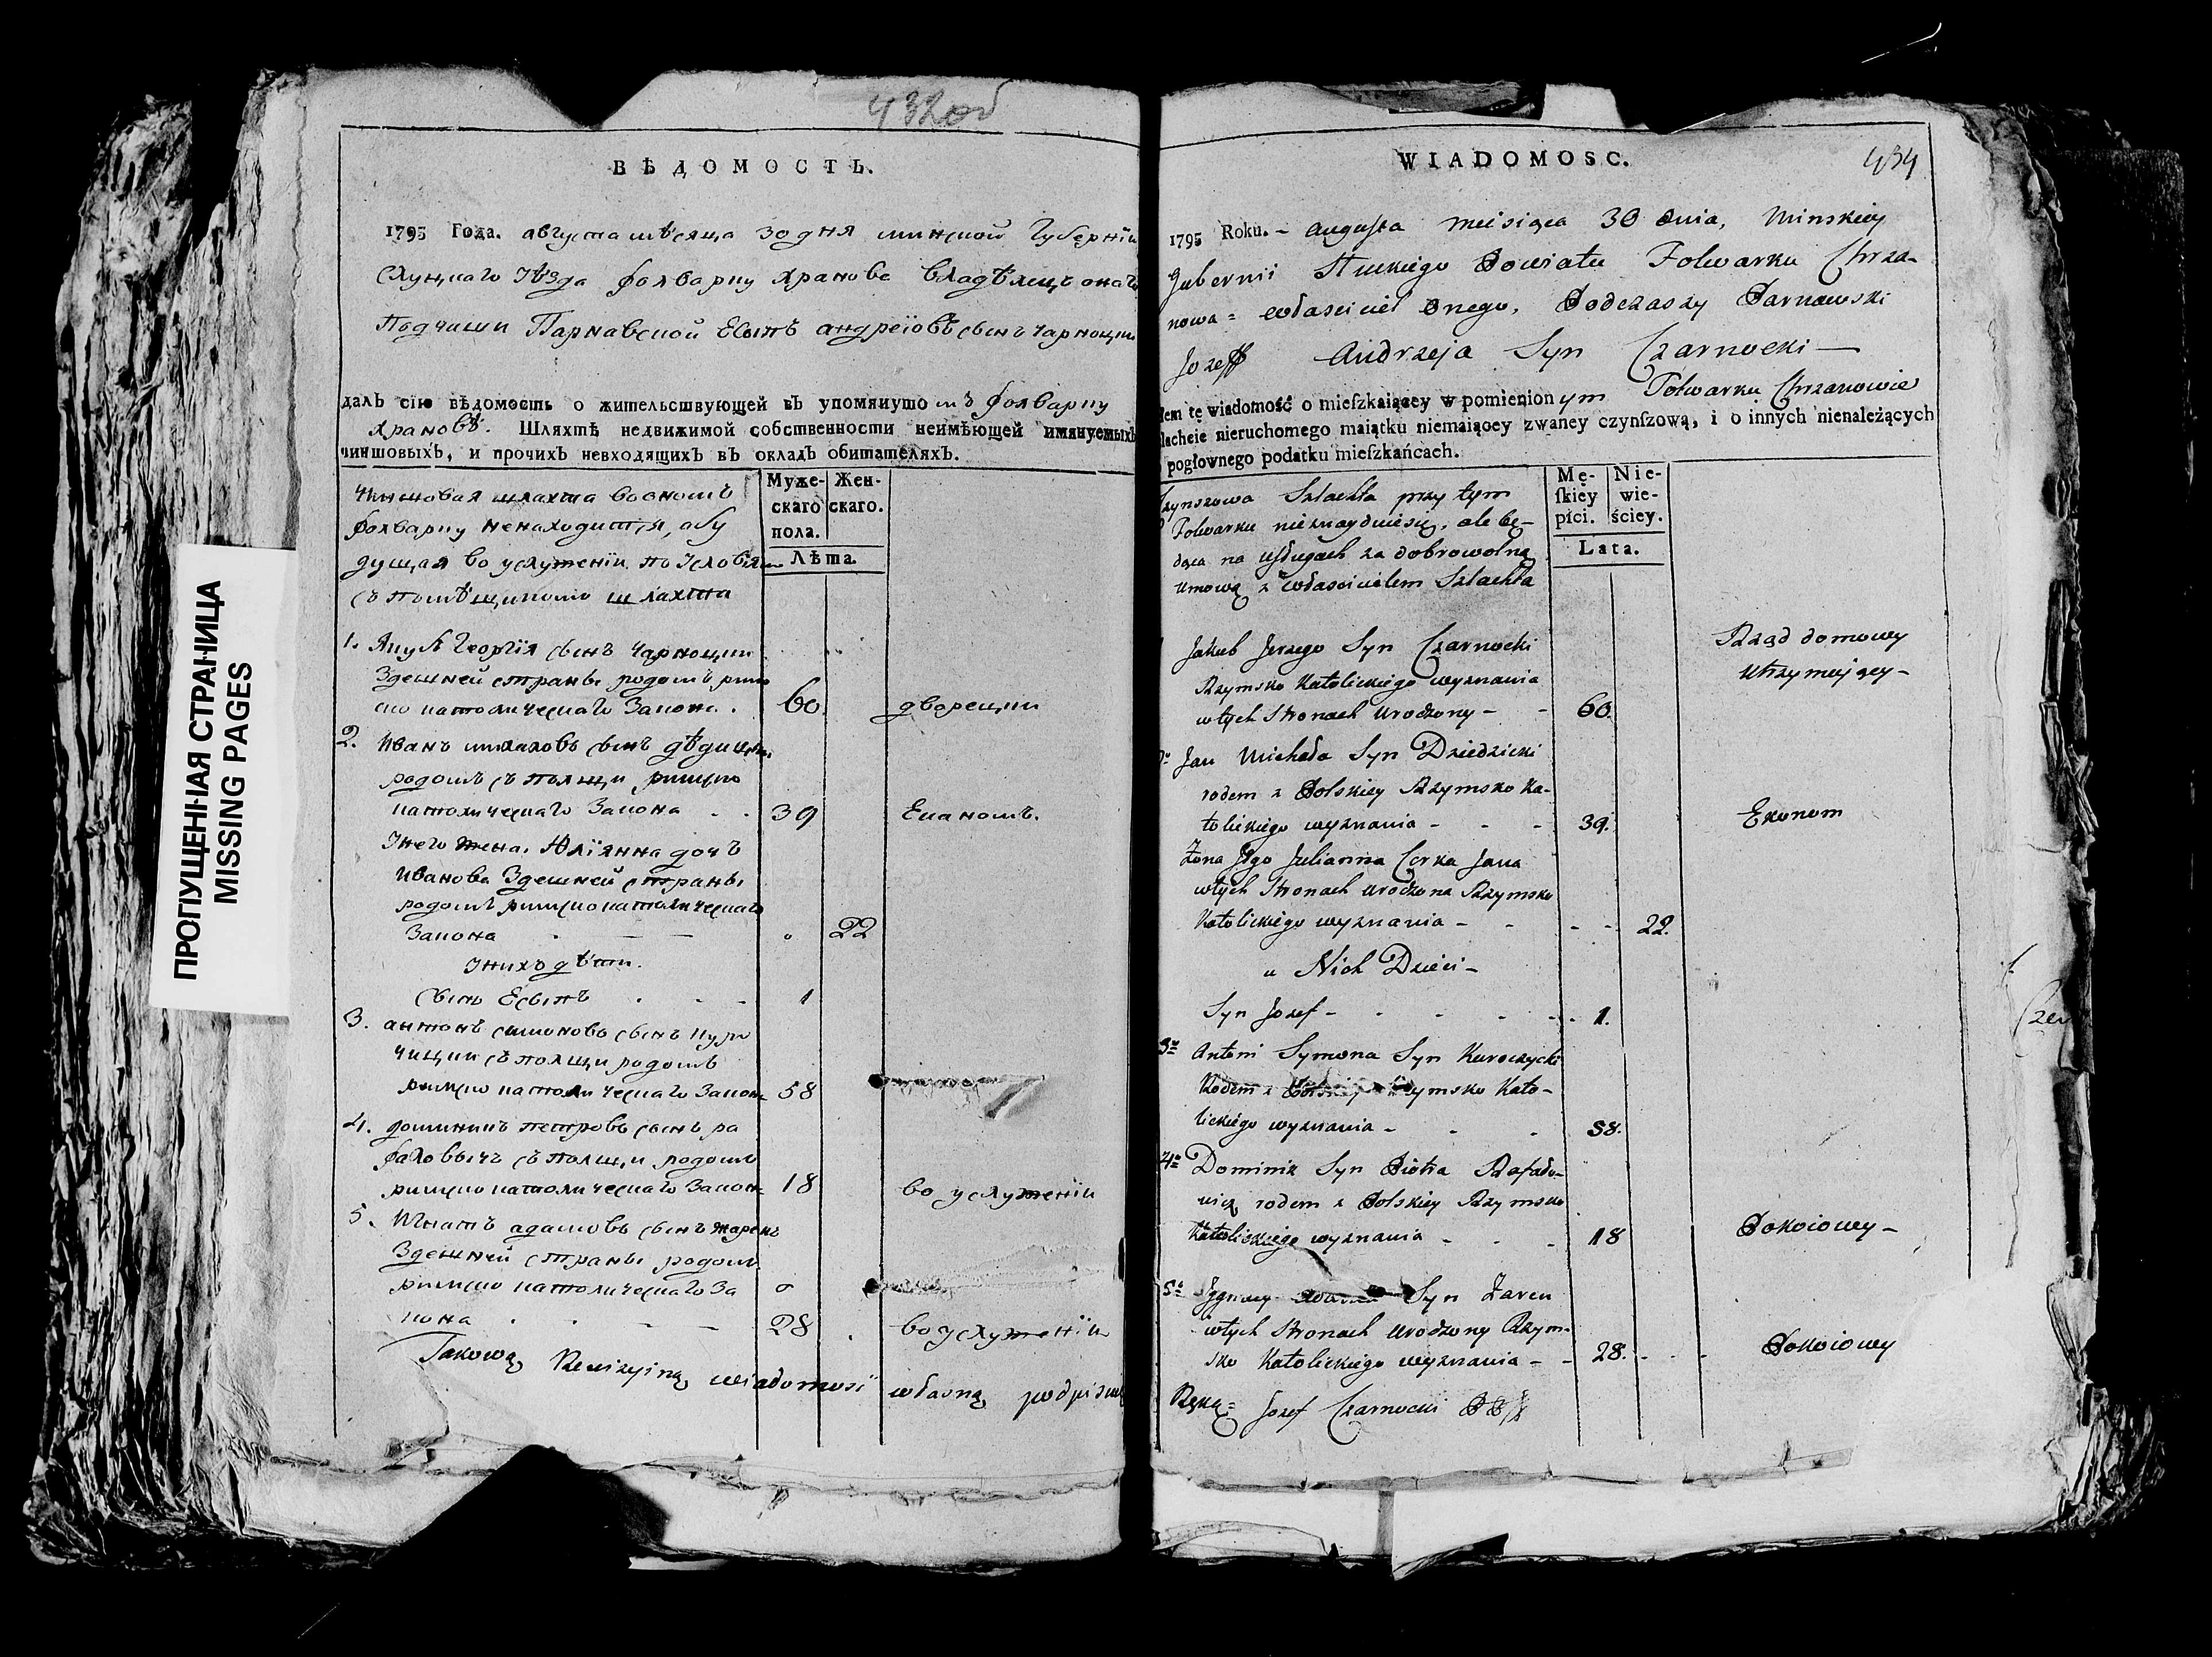 432об
ВѢДОМОСТЬ.
1795 Года. августа мѣсяца 30 дня минской Губернїи
Слуцкаго Уѣзда фолварку Хранова владѣлецъ онаго
Подчаши Парнавской Есыпъ андреїовъ сынъ чарноцки
далъ сїю вѣдомость о жительствующей въ упомянутомъ фолварку
Храновѣ. Шляхтѣ недвижимой собственности неимѣющей имянуемыхъ
чиншовыхъ, и прочихъ невходящихъ въ окладъ обитателяхъ.
Муже- Жен-
скаго скаго.
пола.
Лѣта.
чиншовая шляхта во ономъ
фолварку ненаходится, а бу
дущая во услуженїи по условїям
съ помѣщикомъ шляхта
1. Якубъ Георгїя сынъ Чарноцки
Здешней страны родомъ римс
ко католическаго Закона . 60. дворецки
2. Иванъ михаловъ сынъ дѣдицки
родомъ съ полщи римско
католическаго Закона . . 39 Економъ.
Унего жена. Юлїянна дочъ
Иванова Здешней страны
родомъ римскокатолическаго
Закона . — — 22
Унихъ дѣти.
сынъ Есыпъ . - - 1
3. антонъ симоновъ сынъ Куро
чицки съ полщи родомъ
римско католическаго Закона 58
4. доминикъ петровъ сынъ ра
фаловычъ съ полщи родомъ
римско католическаго Закона 18 во услуженїи
5. Игнатъ адамовъ сынъ жарень
Здешней страны родомъ
римско католическаго За
кона . . — — 28 . во услуженїи
Takową Rewizyiną wiadomosć własną podpisuię
WIADOMOSC.
434
1795 Roku. - augusta meisiąca 30 dnia, Minskiey
Gubernii Słuckiego Powiatu Folwarku Chrza-
nowa = właściciel onego, Podczaszy Parnawski
Jozeff Andrzeja Syn Czarnocki —
łem tę wiadomość o mieszkaiącey w pomienionym Folwarku Chrzanowie
lachcie nieruchomego maiątku niemaiącey zwaney czynszową, i o innych nienależących
pogłownego podatku mieszkańcach.
Mę- Nie-
skiey wie-
płci. ściey.
Lata.
Czynszowa Szlachta przy tym
Folwarku nieznayduiesię, ale bę-
dąca na usługach za dobrowolną
umową z właścicielem Szlachta
Jakub Jerzego Syn Czarnocki Rząd domowy
Rzymsko Katolickiego wyznania utrzymujący -
wtych Stronach Urodzony - - 60.
Jan Michała Syn Dziedzicki
rodem z Polskiey Rzymsko Ka-
tolickiego wyznania - - - 39. Ekonom
Żona Jego Julianna Corka Jana
wtych Stronach urodzona Rzymsko
Katolickiego wyznania - - - - 22.
u Nich Dzieci -
Syn Jozef - - - - - 1.
3o Antoni Symona Syn Kuroczycki
Rodem z Polskiey Rzymsko Kato-
lickiego wyznania - - - 58.
4o Dominik Syn Piotra Rafało-
wicz rodem z Polskiey Rzymsko
Katolickiego wyznania - - - 18 Pokoiowy -
5o Syn Żaren
wtych Stronach Urodzony Rzym-
sko Katolickiego wyznania - - 28. - - - Pokoiowy
Ręką = Jozef Czarnocki
ПРОПУЩЕННАЯ СТРАНИЦА
MISSING PAGES